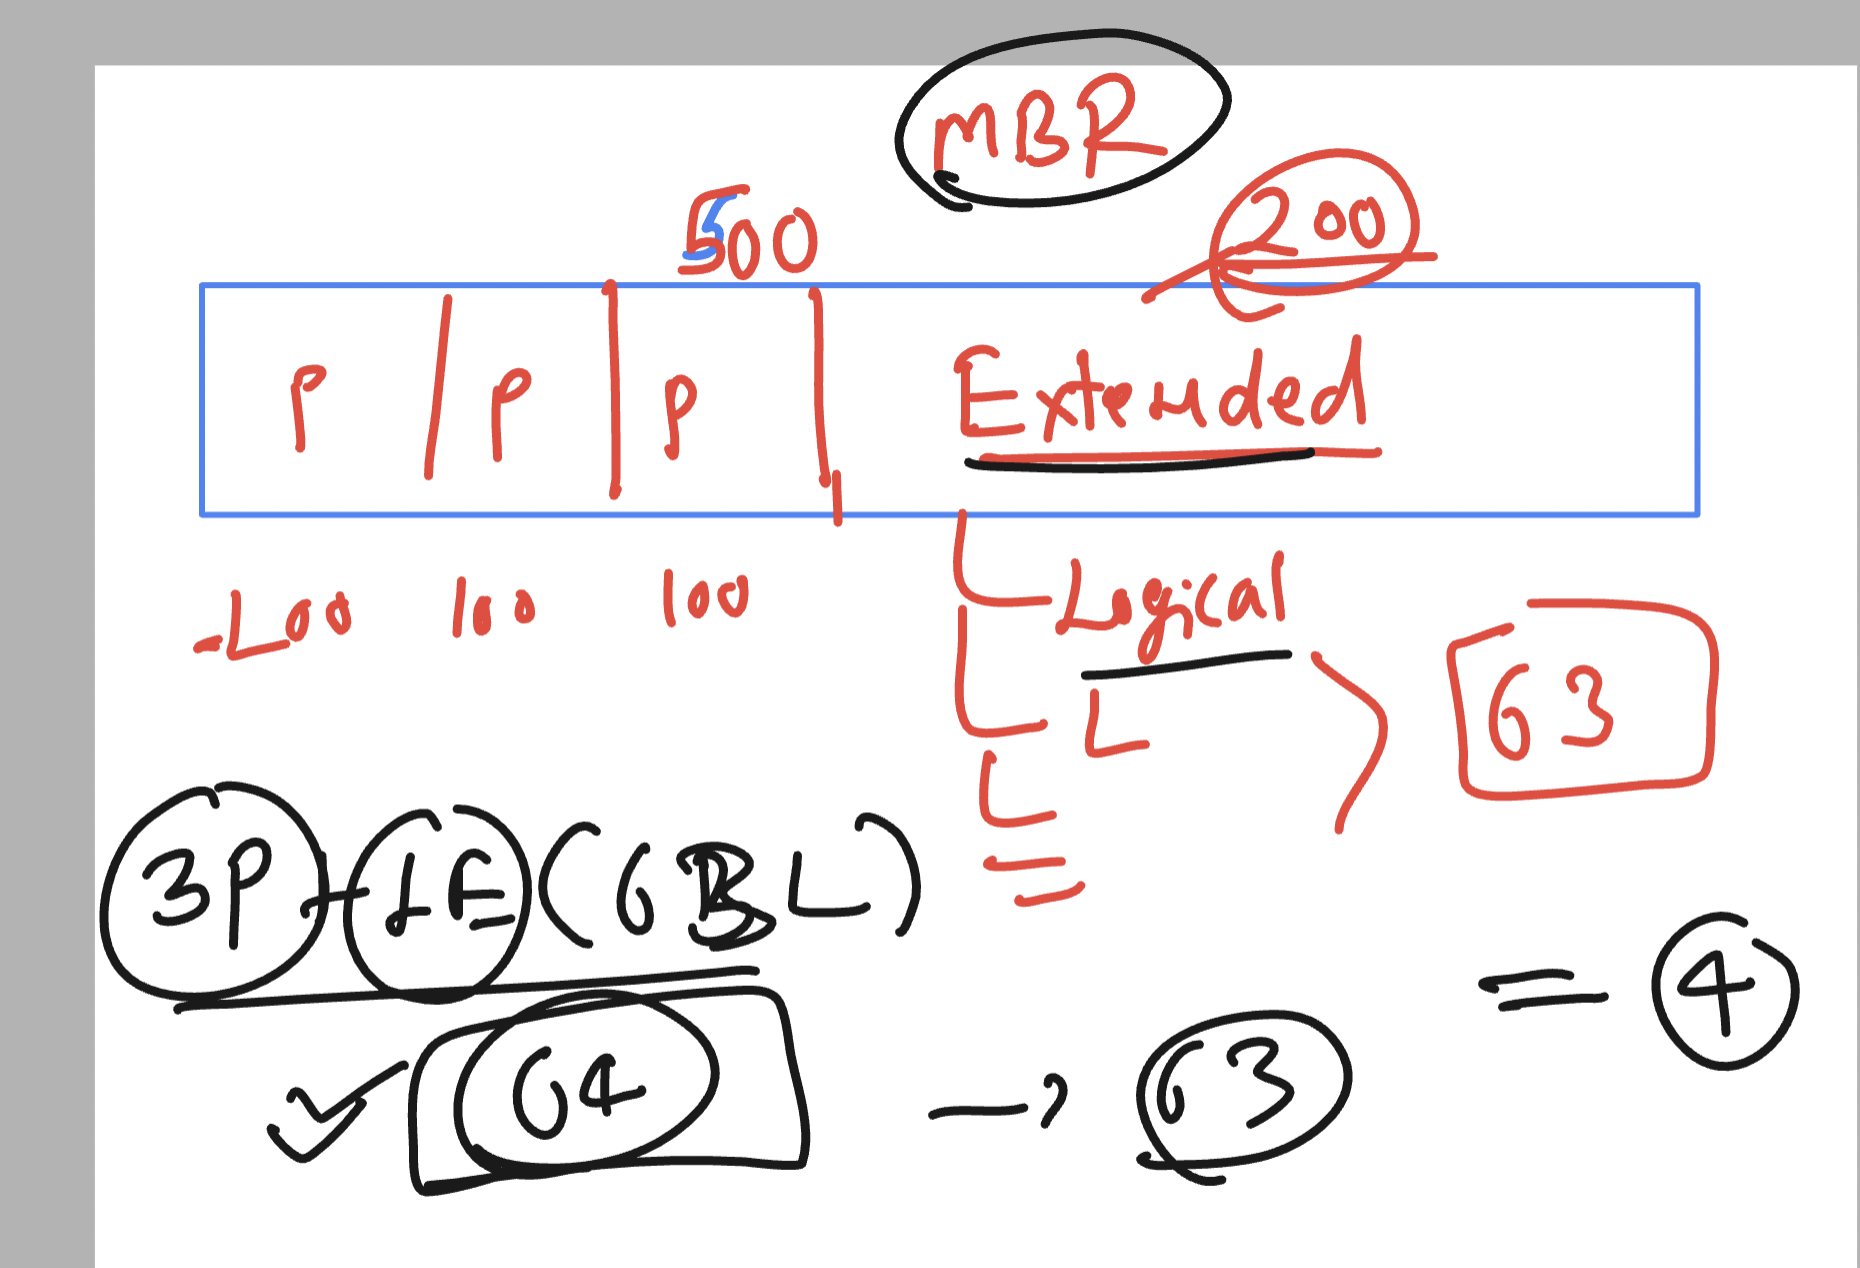 MBR
500 200
P P P Extended
100 100 100
Logical
L
63
3P + 1E (63L)
= 4
64 → 63